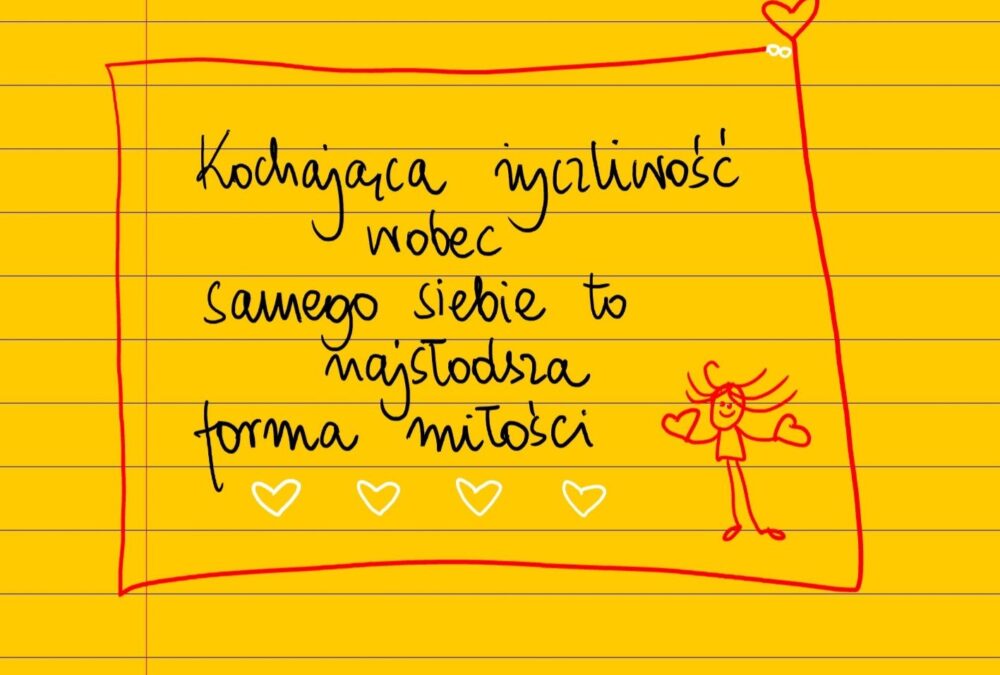 Kochająca życzliwość
wobec
samego siebie to
najsłodsza
forma miłości